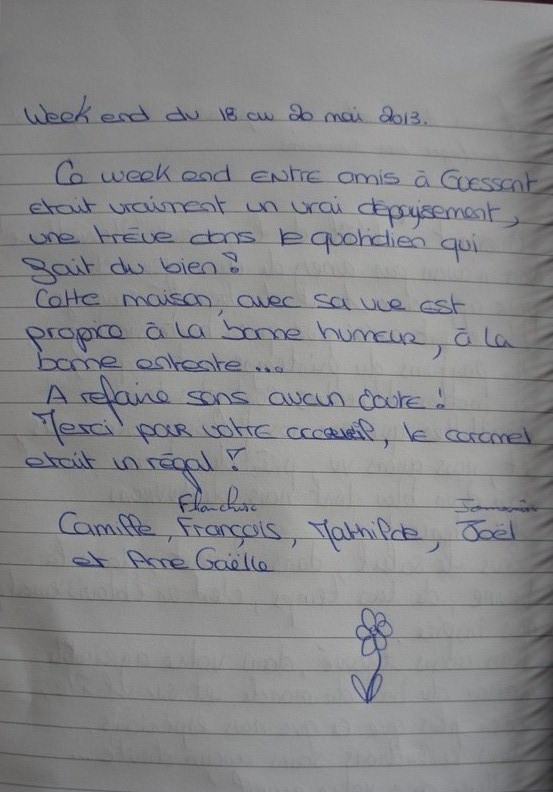 Week end du 18 au 20 mai 2013.
Ce week end ENTRE amis à Ouessant
etait vraiment un vrai dépaysement,
une trève dans le quotidien qui
fait du bien !
Cette maison, avec sa vue est
propice à la bonne humeur, à la
bonne entente...
A refaire sans aucun doute !
Merci pour votre accueil, le caramel
etait un régal !
Camille, François, Mathilde, Joël
et Anne Gaëlle